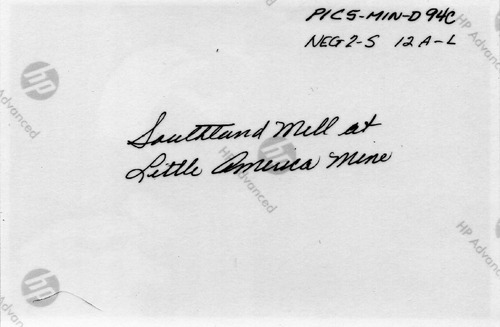 PICS-MIN-D94C
NEG 2-S 12A-L
Southland Mill at
Little America Mine
hp
HP Advanced
hp
HP Advanced
hp
HP Advanced
hp
HP Advanced
HP Advanced